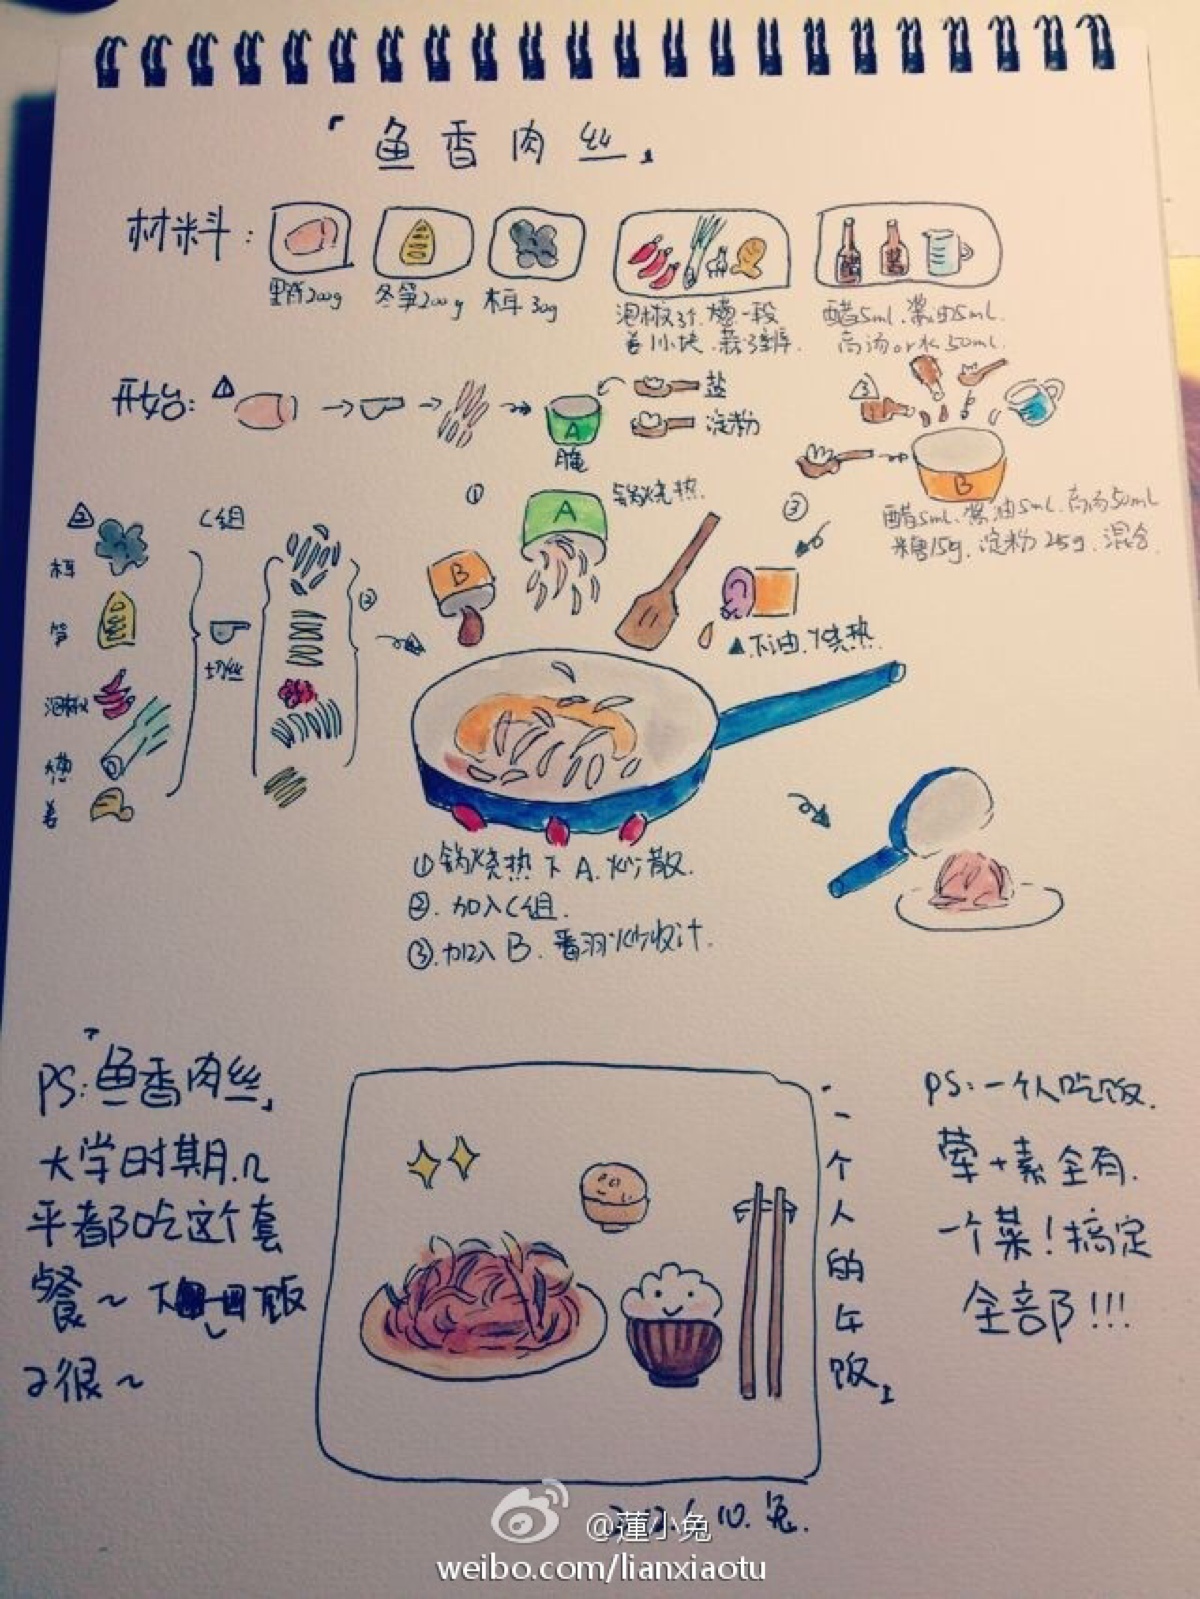 「鱼香肉丝」
材料:
里脊200g
冬笋200g
木耳 30g
泡椒3个.大葱一段
姜1小块.蒜3瓣.
醋5ml.酱油5ml.
高汤or水50ml.
开始:
1
盐
A
淀粉
腌
3
B
醋5ml.酱油5ml.高汤50ml
糖15g.淀粉25g.混合.
2
C组
木耳
笋
泡椒
大葱
姜
切丝
①
A
锅烧热.
B
②
③
下油.烧热.
①锅烧热下A.炒散.
②.加入C组.
③.加入B.翻炒收汁.
PS:「鱼香肉丝」
大学时期.几
乎都吃这个套
餐~下饭
得很~
「一个人的午饭」
PS:一个人吃饭.
荤+素全有.
一个菜!搞定
全部!!!
兔.
@蓮小兔
weibo.com/lianxiaotu